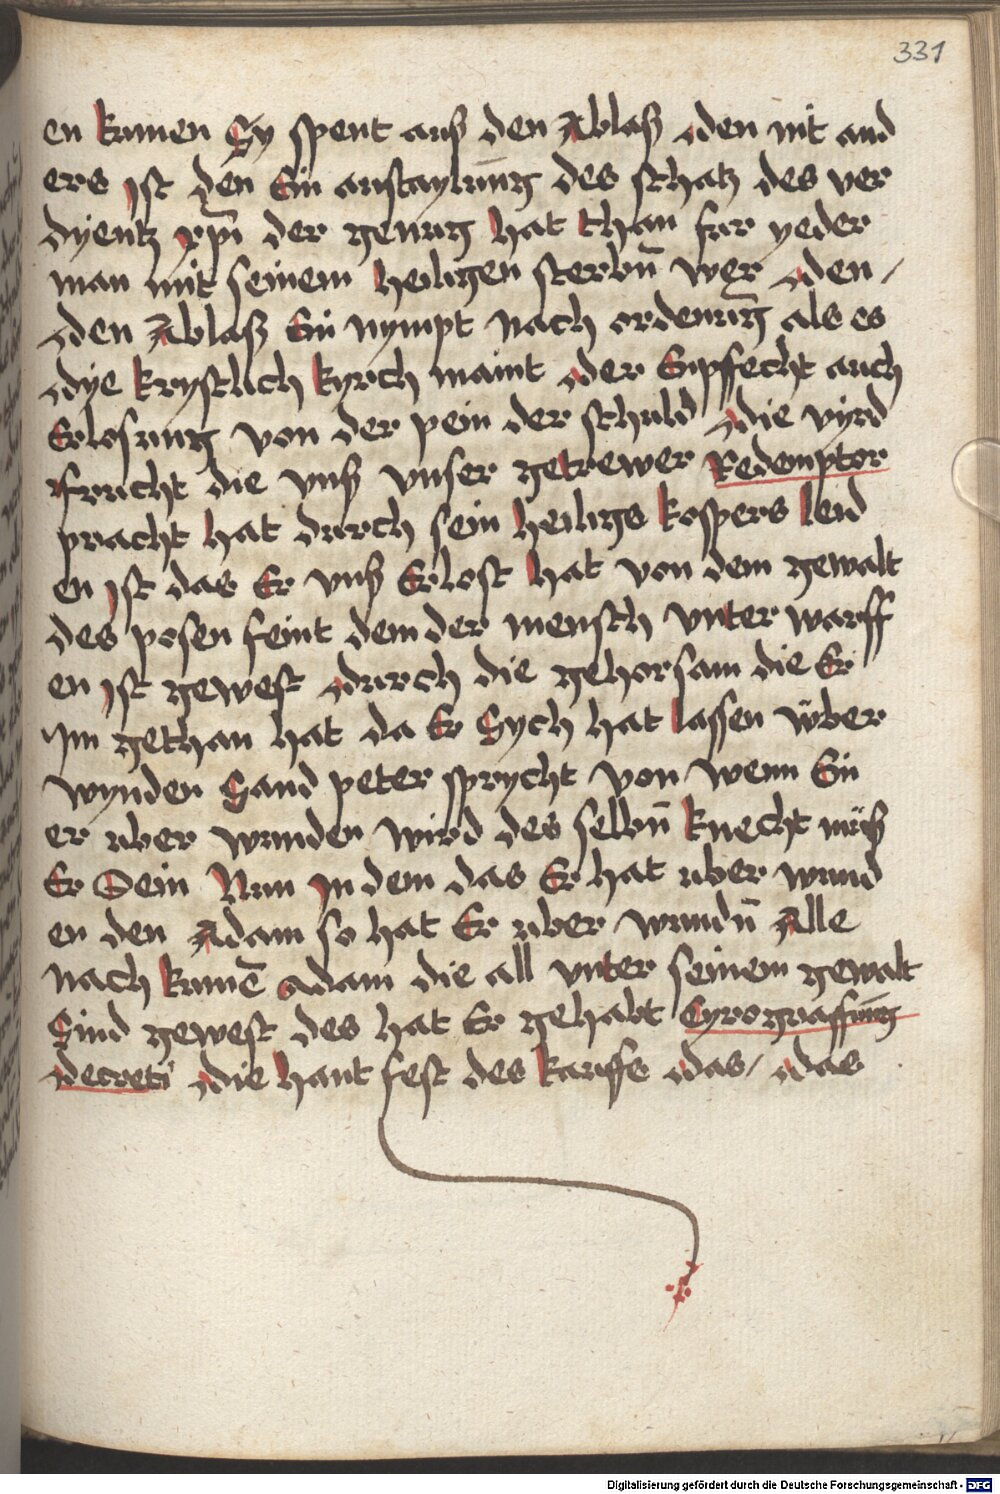 331
en kumen Sy spent auß den Ablaß den nit and
ers ist den Ein austaylung des schatz des ver
dyentz xpi der genug hat than fur yeder
man mit seinem heiligen sterbn̄ wer den /
den Ablaß Ein nympt nach ordenūg als es
dye krystlich kyrch maint der Enpfecht auch
Erlosung von der pein der schuld die vyrd
frucht die vnß vnser getrewer Redemptor
pracht hat durch sein heiligs kospers leid
en ist das Er vnß Erlost hat von dem gewalt
des posen feint dem der mensch vnter warff
en ist gewest durch die gehorsam die Er
Im gethan hat da Er Sych hat lassen über
wynden Sand peter sprycht von wem Ein
er uber wunden wird des selbn̄ knecht müß
Er Sein Nun In dem das Er hat uber wund
en den Adam so hat Er uber wundn̄ Alle
nach kumē adam die all vnter seinem gewalt
Sind gewest des hat Er gehabt Cyrograffūg
decreti die hant fest des kauffs das / das
Digitalisierung gefördert durch die Deutsche Forschungsgemeinschaft - DFG